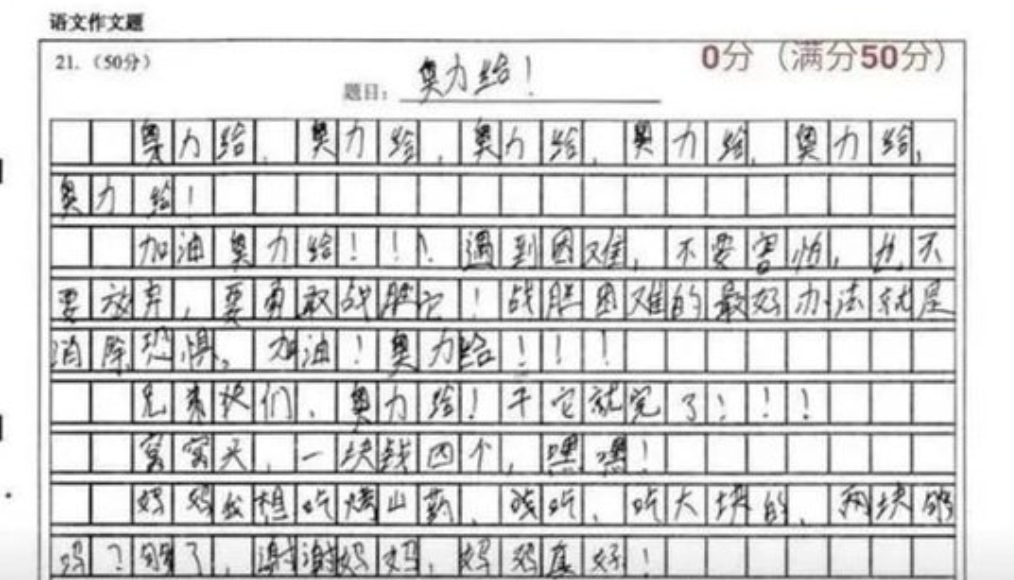 语文作文题
21.（50分）
0分（满分50分）
题目：奥力给！
奥力给，奥力给，奥力给，奥力给，奥力给，
奥力给！
加油奥力给！！！遇到困难，不要害怕，也不
要放弃，要勇敢战胜它！战胜困难的最好办法就是
消除恐惧。加油！奥力给！！！
兄弟们，奥力给！干它就完了！！！
窝窝头，一块钱四个，嘿嘿！
妈妈想吃烤山药，吃，吃大块的，两块够
吗？够了，谢谢妈妈，妈妈真好！